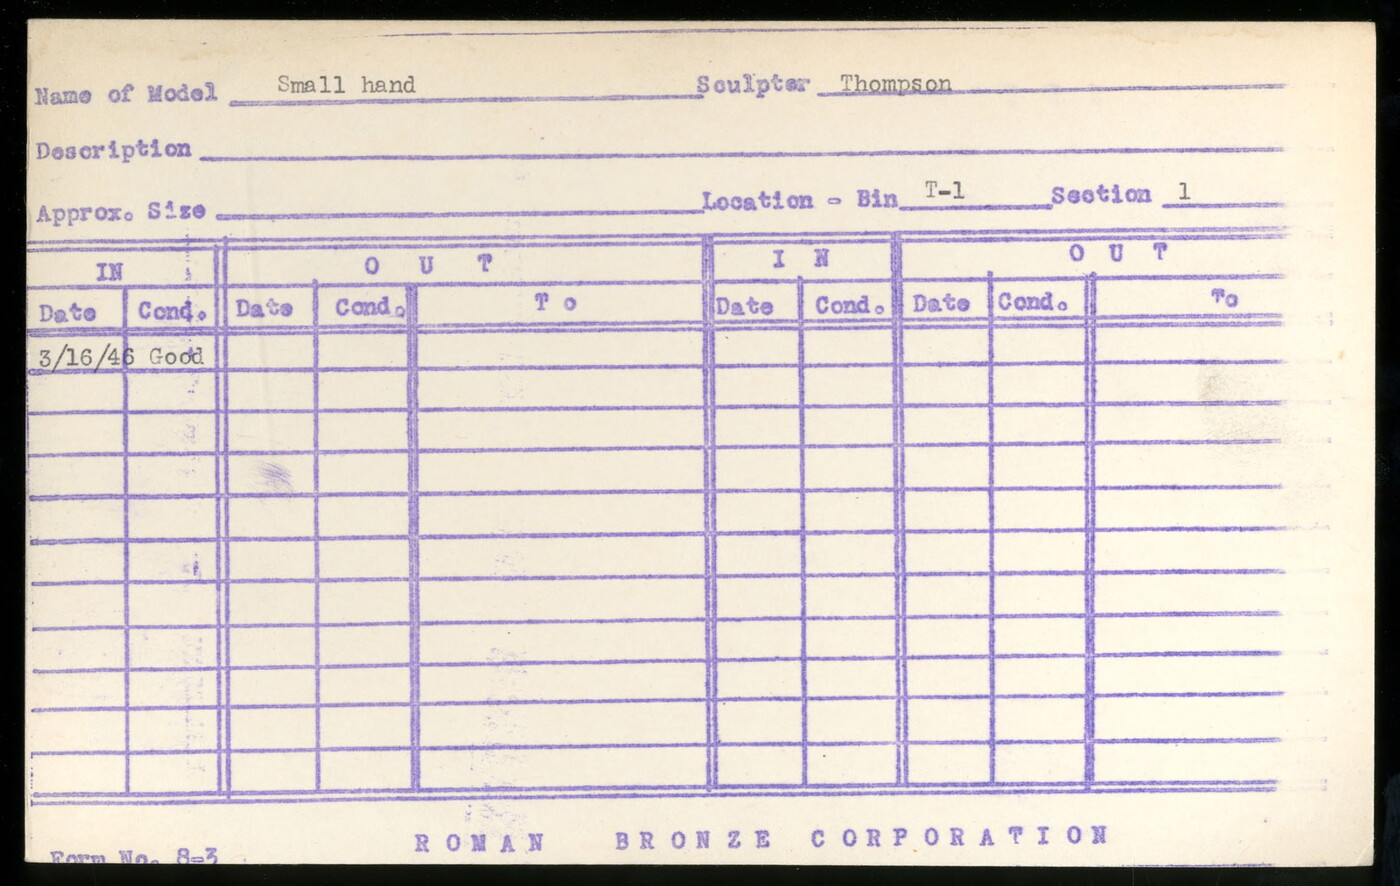 Name of Model Small hand Sculptor Thompson
Description
Approx. Size Location - Bin T-1 Section 1
IN O U T I N O U T
Date Cond. Date Cond. T o Date Cond. Date Cond. To
3/16/46 Good
ROMAN BRONZE CORPORATION
Form No. 8-3